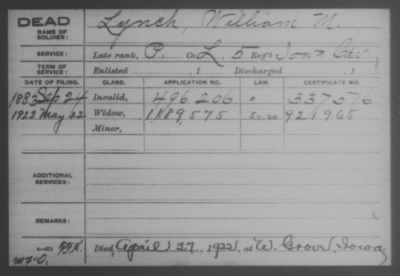 DEAD
NAME OF SOLDIER: Lynch, William M.
SERVICE: Late rank, P. Co. L, 5 Reg't Iowa Cav
TERM OF SERVICE: Enlisted , 1 Discharged , 1
DATE OF FILING. CLASS. APPLICATION NO. LAW. CERTIFICATE NO.
1883 Sep 24 Invalid, 496206 337576
1922 May 22 Widow, 1189,575 921965
Minor,
ADDITIONAL SERVICES:
REMARKS:
Died April 27, 1922, at W. Grove, Iowa